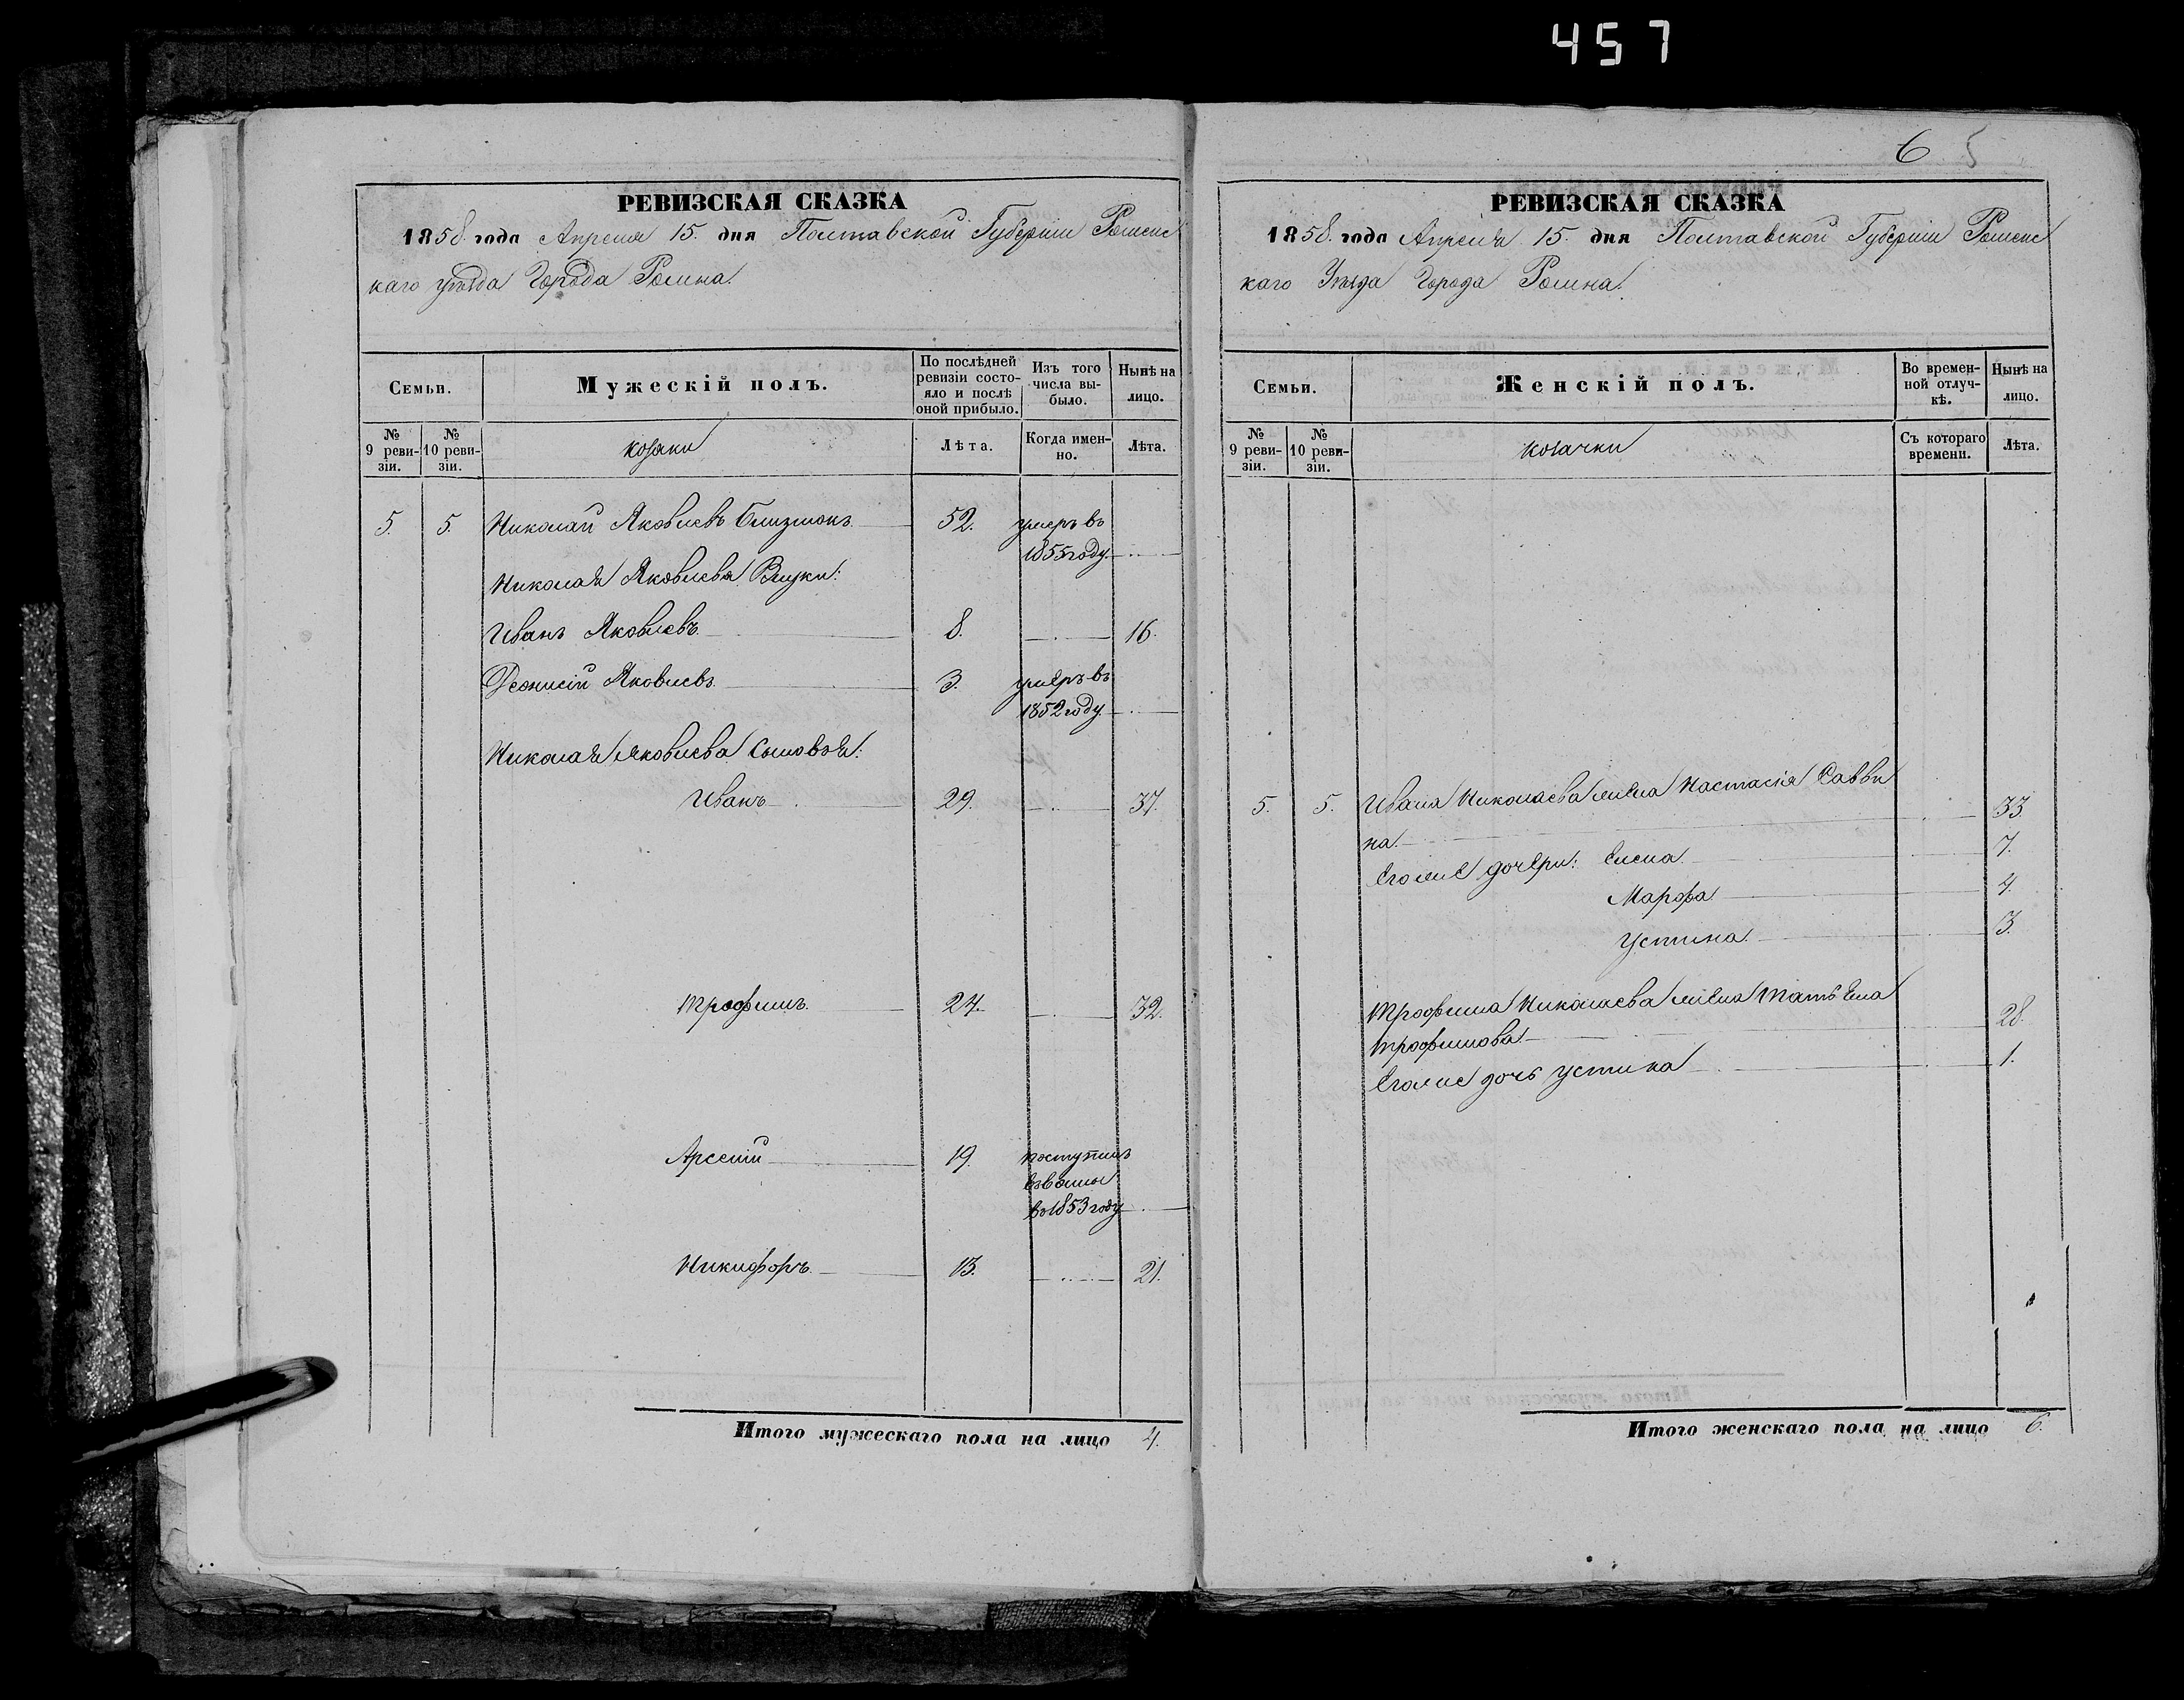 457
6 5
РЕВИЗСКАЯ СКАЗКА
1858. года Апреля 15. дня Полтавской Губерніи Роменс
каго уѣзда Города Ромна.
Семьи.
Мужескій полъ.
По послѣдней ревизіи состояло и послѣ оной прибыло.
Изъ того числа выбыло.
Нынѣ на лицо.
№ 9 ревизіи.
№ 10 ревизіи.
козаки
Лѣта.
Когда именно.
Лѣта.
5. 5. Николай Яковлевъ 52. умеръ въ
1855 году.
Николая Яковлева Внуки:
Иванъ Яковлевъ 8. 16.
Деонисій Яковлевъ 3. умеръ въ
1852 году.
Николая Яковлева Сыновья:
Иванъ 29. 37.
Трофимъ 24. 32.
Арсеній 19. поступилъ
въ
въ 1853 году
Никифоръ 13. 21.
Итого мужескаго пола на лицо 4.
РЕВИЗСКАЯ СКАЗКА
1858. года Апреля 15. дня Полтавской Губерніи Роменс
каго Уѣзда Города Ромна.
Семьи.
Женскій полъ.
Во временной отлучкѣ.
Нынѣ на лицо.
№ 9 ревизіи.
№ 10 ревизіи.
козачки
Съ котораго времени.
Лѣта.
5. 5. Ивана Николаева жена Настасія Савви
на. 33.
Егоже дочери: Елена 7.
Марфа 4.
Устина. 3.
Трофима Николаева жена Татьена
трофимова 28.
Егоже дочь устина 1.
Итого женскаго пола на лицо 6.